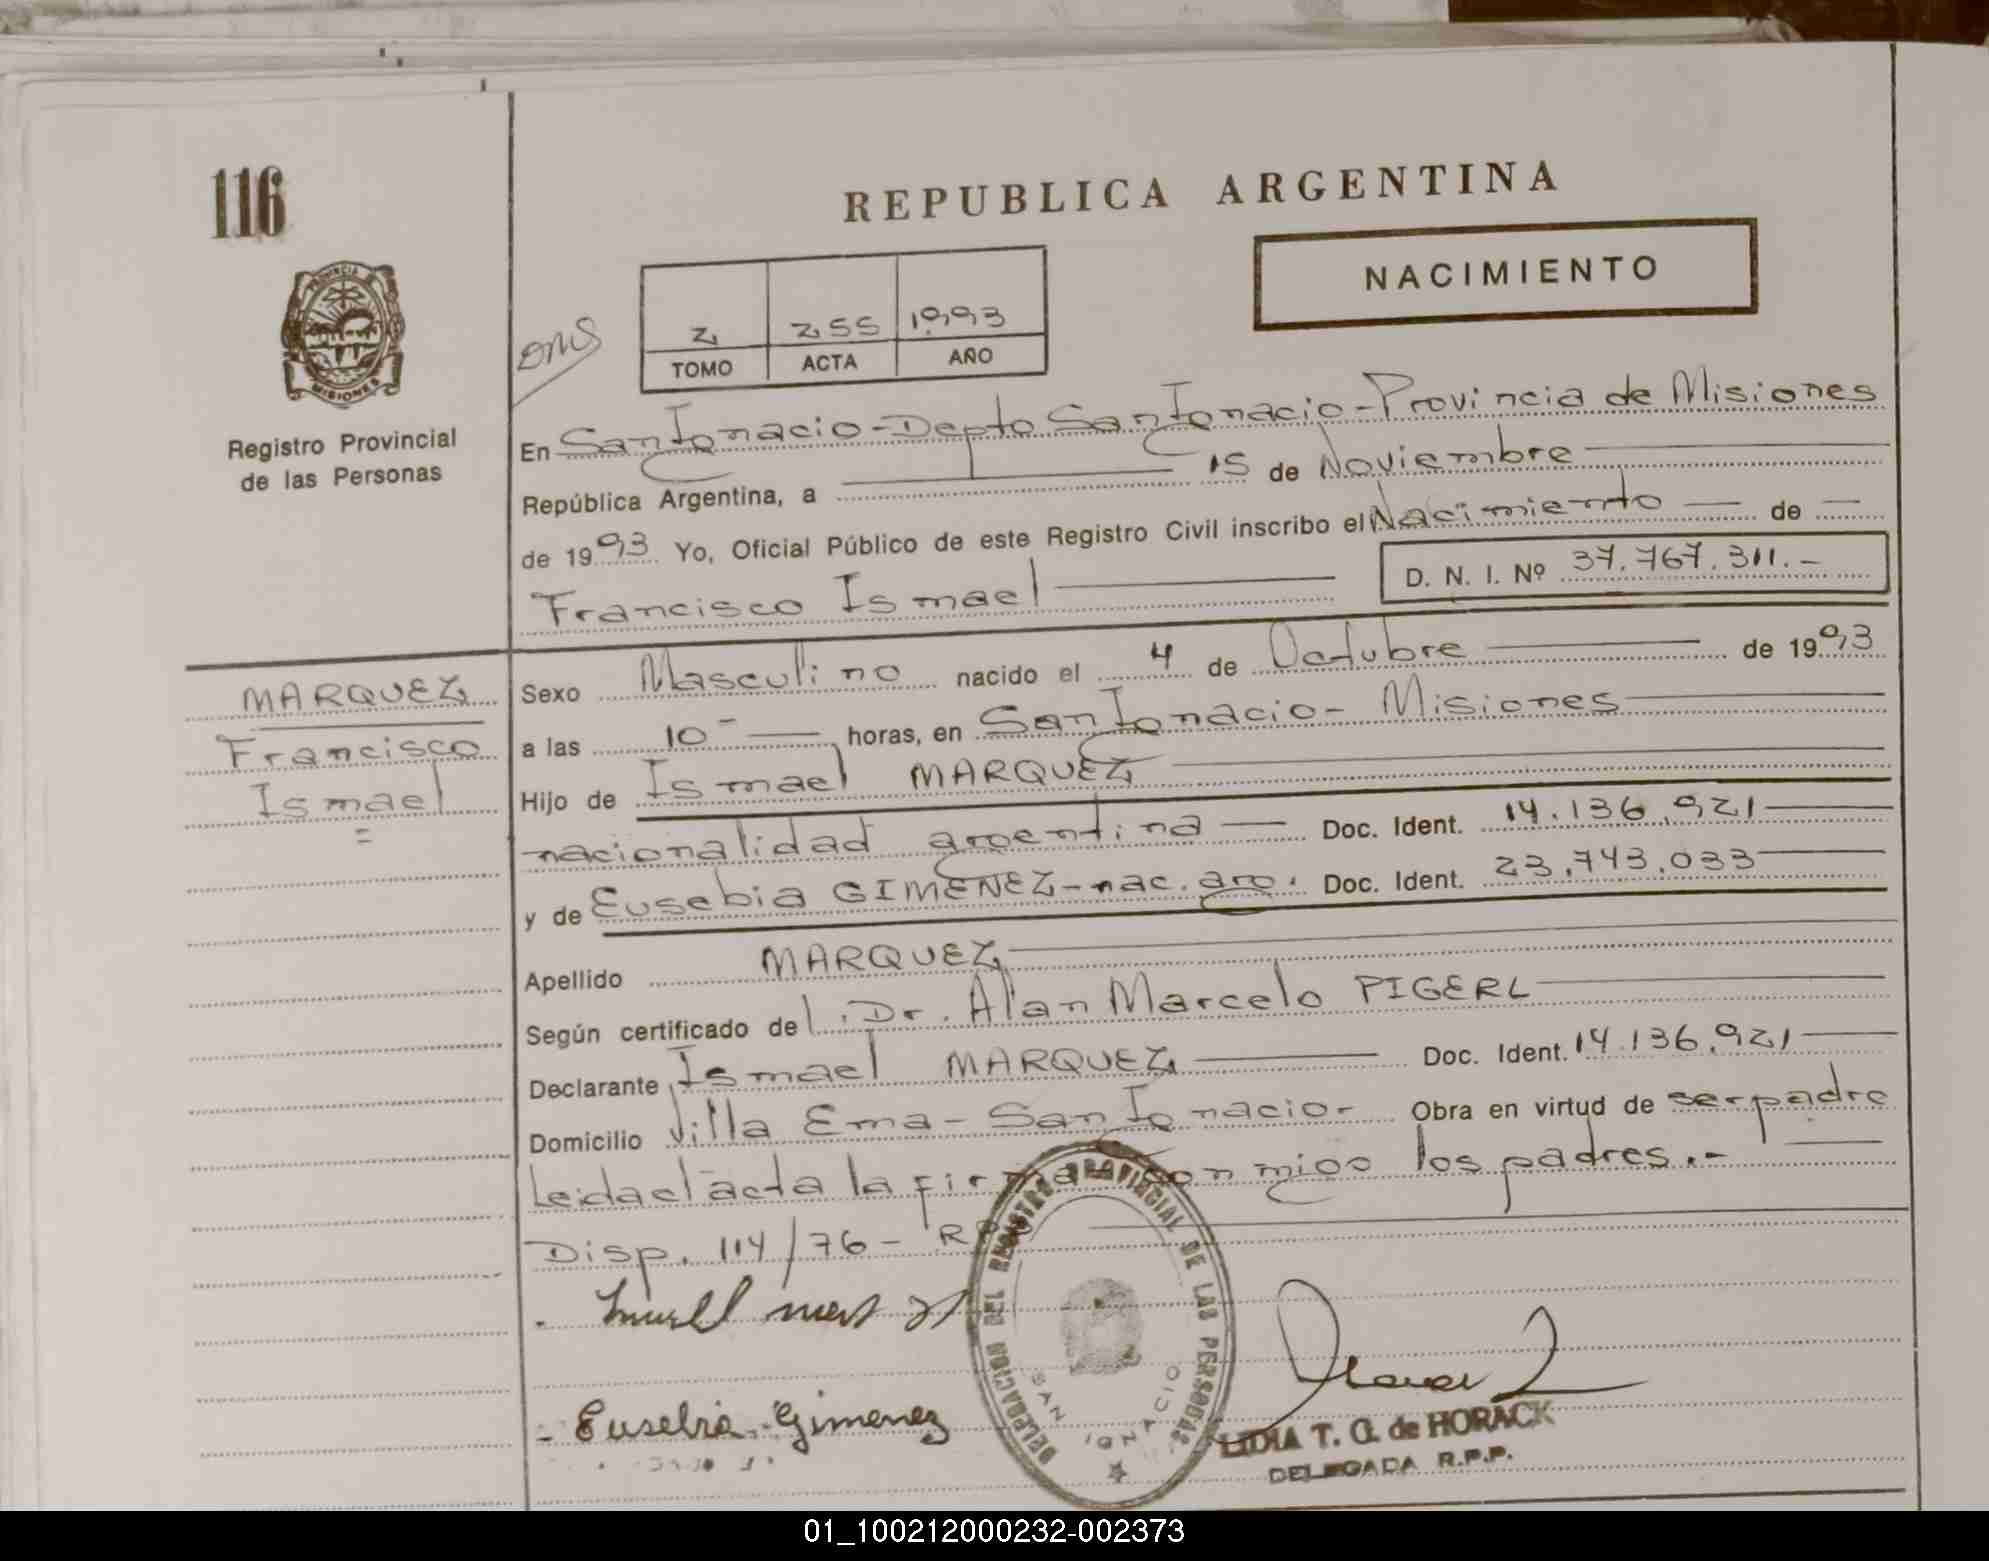 116
REPUBLICA ARGENTINA
NACIMIENTO
PROVINCIA DE
MISIONES
Registro Provincial
de las Personas
2 255 1993
TOMO ACTA AÑO
En San Ignacio - Depto San Ignacio - Provincia de Misiones
República Argentina, a 15 de Noviembre
de 1993 Yo, Oficial Público de este Registro Civil inscribo el Nacimiento — de —
Francisco Ismael
D. N. I. Nº 37.767.311.-
MARQUEZ
Francisco
Ismael
=
Sexo Masculino nacido el 4 de Octubre de 1993
a las 10 - horas, en San Ignacio - Misiones
Hijo de Ismael MARQUEZ
nacionalidad argentina — Doc. Ident. 14.136.921
y de Eusebia GIMENEZ - nac. arg. Doc. Ident. 23.743.033
Apellido MARQUEZ
Según certificado del. Dr. Alan Marcelo PIGERL
Declarante Ismael MARQUEZ Doc. Ident. 14.136.921
Domicilio Villa Ema - San Ignacio - Obra en virtud de ser padre
Leida el acta la firman conmigo los padres.-
Disp. 114/76 -
Eusebia Gimenez
DELEGACION DEL REGISTRO PROVINCIAL DE LAS PERSONAS
SAN IGNACIO
LIDIA T. G. de HORACK
DELEGADA R.P.P.
01_100212000232-002373